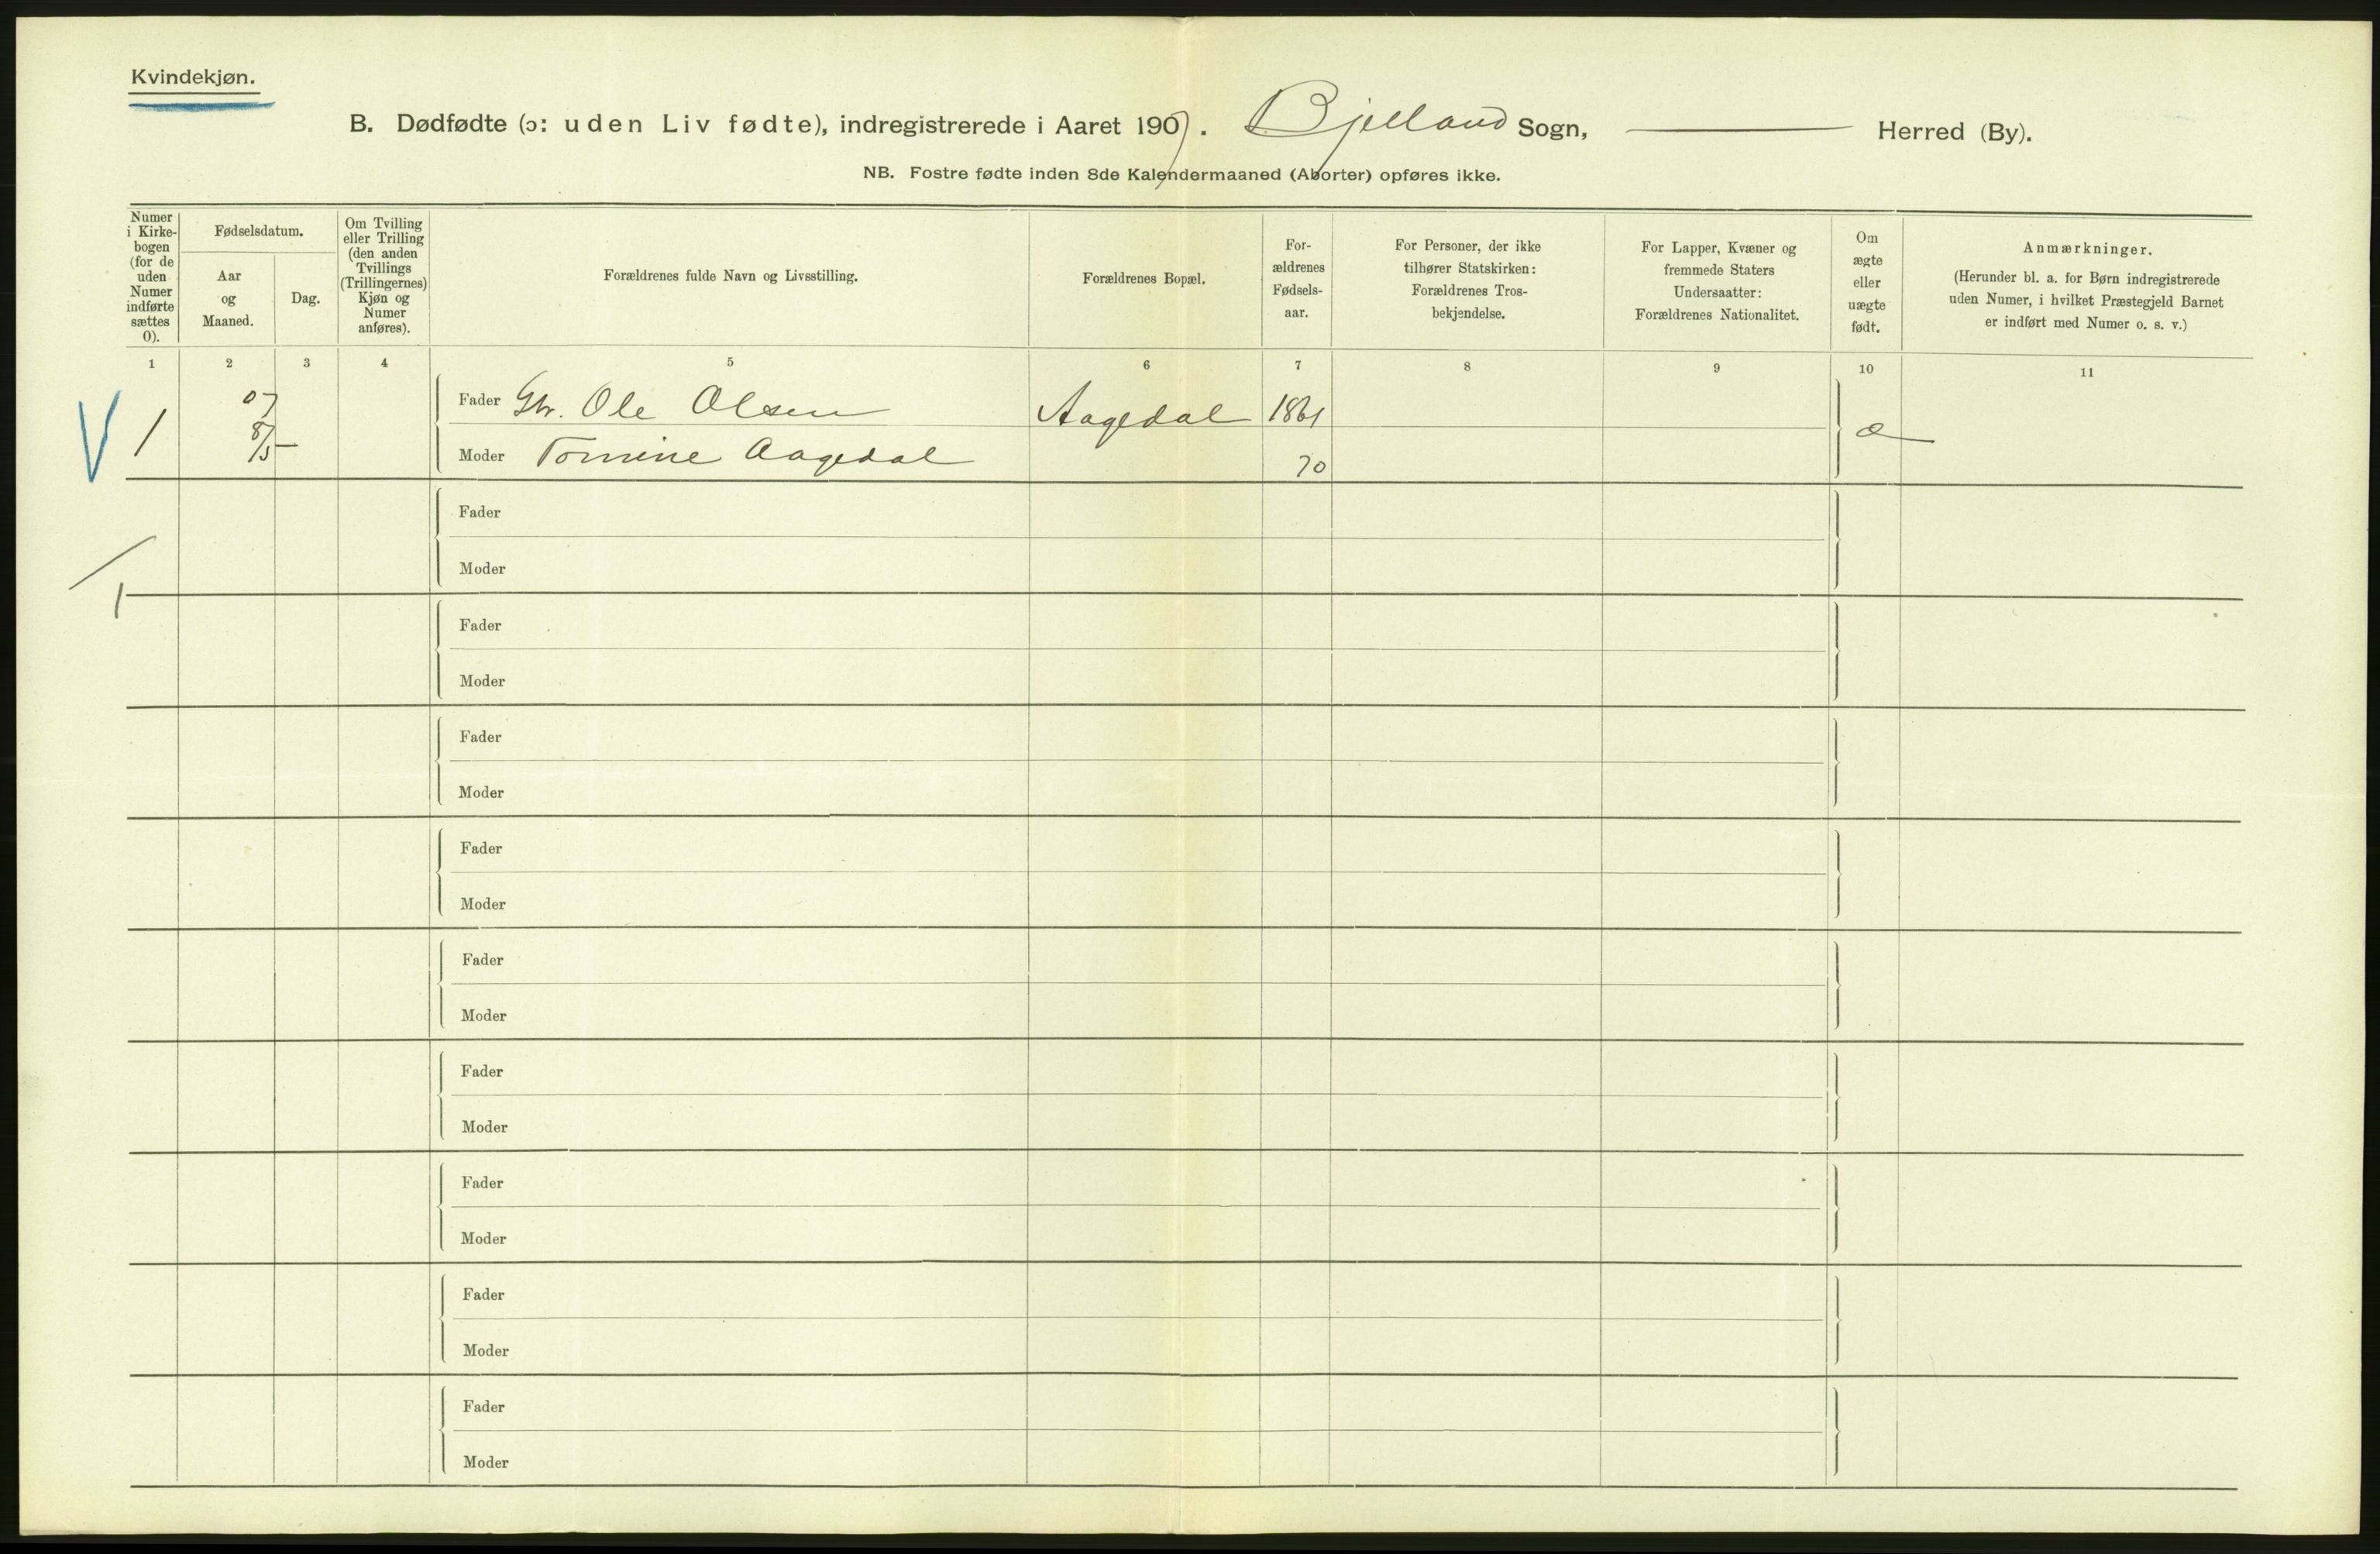 Kvindekjøn.
B. Dødfødte (ɔ: uden Liv fødte), indregistrerede i Aaret 1907. Bjelland Sogn, Herred (By).
NB. Fostre fødte inden 8de Kalendermaaned (Aborter) opføres ikke.
Numer i Kirke-bogen (for de uden Numer indførte sættes 0).
Fødselsdatum.
Aar og Maaned.
Dag.
Om Tvilling eller Trilling (den anden Tvillings (Trillingernes) Kjøn og Numer anføres).
Forældrenes fulde Navn og Livsstilling.
Forældrenes Bopæl.
For-ældrenes Fødsels-aar.
For Personer, der ikke tilhører Statskirken: Forældrenes Tros-bekjendelse.
For Lapper, Kvæner og fremmede Staters Undersaatter: Forældrenes Nationalitet.
Om ægte eller uægte født.
Anmærkninger.
(Herunder bl. a. for Børn indregistrerede uden Numer, i hvilket Præstegjeld Barnet er indført med Numer o. s. v.)
1 2 3 4 5 6 7 8 9 10 11
V 1 07 8/5 Fader Gbr. Ole Olsen Aagedal 1861 æ
Moder Tomine Aagedal 70
Fader
Moder
1
Fader
Moder
Fader
Moder
Fader
Moder
Fader
Moder
Fader
Moder
Fader
Moder
Fader
Moder
Fader
Moder